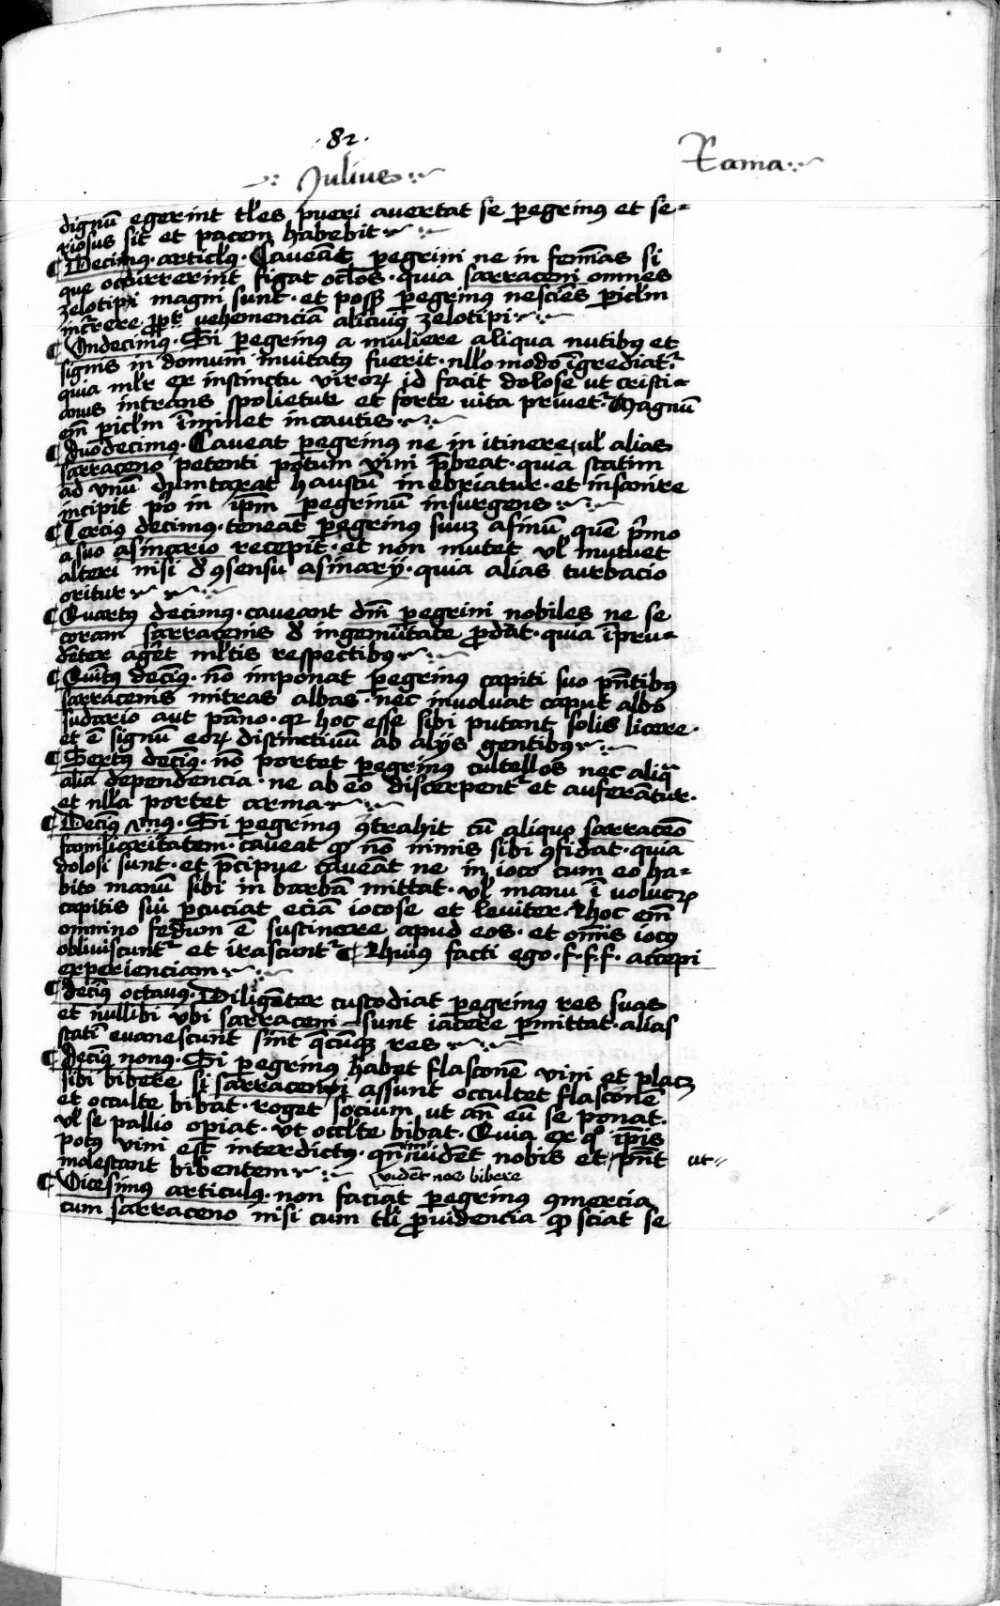 ·82·
Julius
Rama
dignū egerint tl̄es pueri avertat se peregrinus et se-
riosus sit et pacem habebit
¶ Decimus· articlus· Caveāt peregrini ne in femīas si
que occurrerint figat oclōs· quia sarraceni omnes
zelotipi magni sunt· et possz peregrinus nesciēs piclm
incrrere propt vehemenciā alicuius zelotipi
¶ Vndecimus· Si peregrinus a muliere aliqua nutibus et
signis in domum invitatus fuerit· nllo modo īgrediatr
quia mlr ex instinctu viror id facit dolose ut cristi-
anus intrans spolietur et forte vita privetr Magnū
em̄ piclm īminet incautis
¶ duodecimus· Caveat peregrinus ne in itinere vl alias
sarraceno petenti potum vini p̄beat· quia statim
ad vnū dumtaxat haustū inebriatur· et insanire
incipit po in ip̄m peregrinū insurgens
¶ Tercius decimus· teneat peregrinus suum asinū quē primo
a suo asinario recepit· et non mutet vl mutuet
alteri nisi d 9sensu asinarij· quia alias turbacio
oritur
¶ Quartus decimus· caveant dm̄ peregrini nobiles ne se
coram sarracenis d ingenuitate prodāt· quia īpru-
dēter agēt mltis respectibus
¶ Quītus deciūs· nō imponat peregrinus capiti suo pn̄tibus
sarracenis mitras albas· nec involvat caput albo
sudario aut pāno· qr hoc esse sibi putant solis licere·
et ē signū eor distinctivū ab alijs gentibus
¶ Sextus deciūs· nō portet peregrinus cultellos nec aliq̄
alia dependencia· ne ab eo discerpentr et auferātur·
et nlla portet arma
¶ Deciūs vmus· Si peregrinus 9trahit cū aliquo sarraceō
familiaritatem· caveat qp nō nimis sibi 9fidat· quia
dolosi sunt· et p̄cipue caveāt ne in ioco cum eo ha-
bito manū sibi in barbā mittat· vl manu ī volucr
capitis sui pcuciat eciā iocose et leviter· Khoc em̄
omnino fedum ē sustinere apud eos· et om̄is iocus
obliviscuntr et irascuntr ¶ Khuius facti ego· f· f· f· accepi
experienciam
¶ deciūs octavus· Diligēter custodiat peregrinus res suas
et nullibi vbi sarraceni sunt iacere pmittat· alias
statī evanescunt sint q̄cumqz res
¶ deciūs nonus· Si peregrinus habet flasconē vini et placz
sibi bibere si sarraceni assunt occultet flasconē
et occulte bibat· roget socium ut an̄ eū se ponat·
vl se pallio opiat· vt occlte bibat· Quia ex qo ip̄is
potus vini est interdictus· qn̄ īvidēt nobis et pn̄t ut
molestant bibentem vidēt nos bibere
¶ Vicesimus articulus· non faciat peregrinus 9mercia
cum sarraceno nisi cum tli providencia qp sciat se